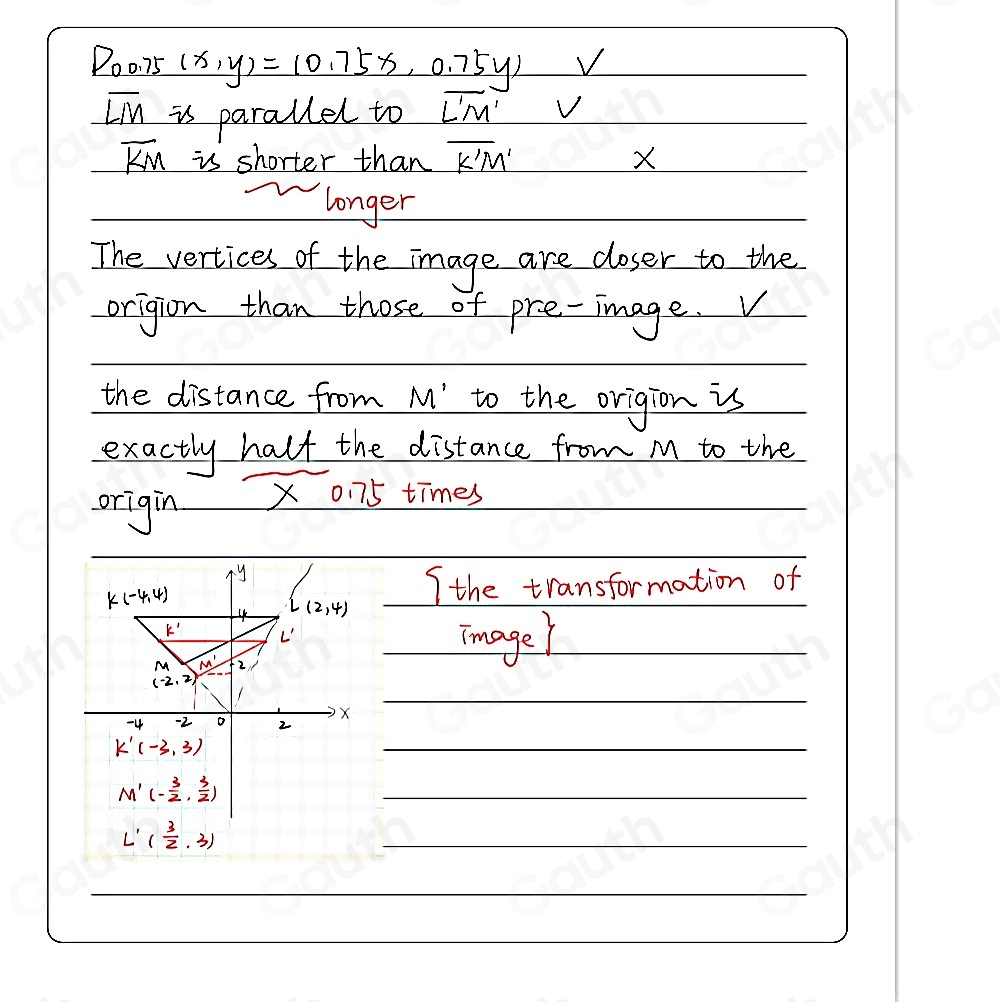 D₀ 0.75 (x, y) = (0.75x, 0.75y) √
LM is parallel to L'M' √
KM is shorter than K'M' ×
longer
The vertices of the image are closer to the
origion than those of pre-image. √
the distance from M' to the origion is
exactly half the distance from M to the
origin × 0.75 times
{the transformation of
image}
y
K(-4,4)
4
L(2,4)
K'
L'
M
M'
2
(-2,2)
-4 -2 0 2 x
K'(-3,3)
M'(-3/2, 3/2)
L'(3/2, 3)
Gauth